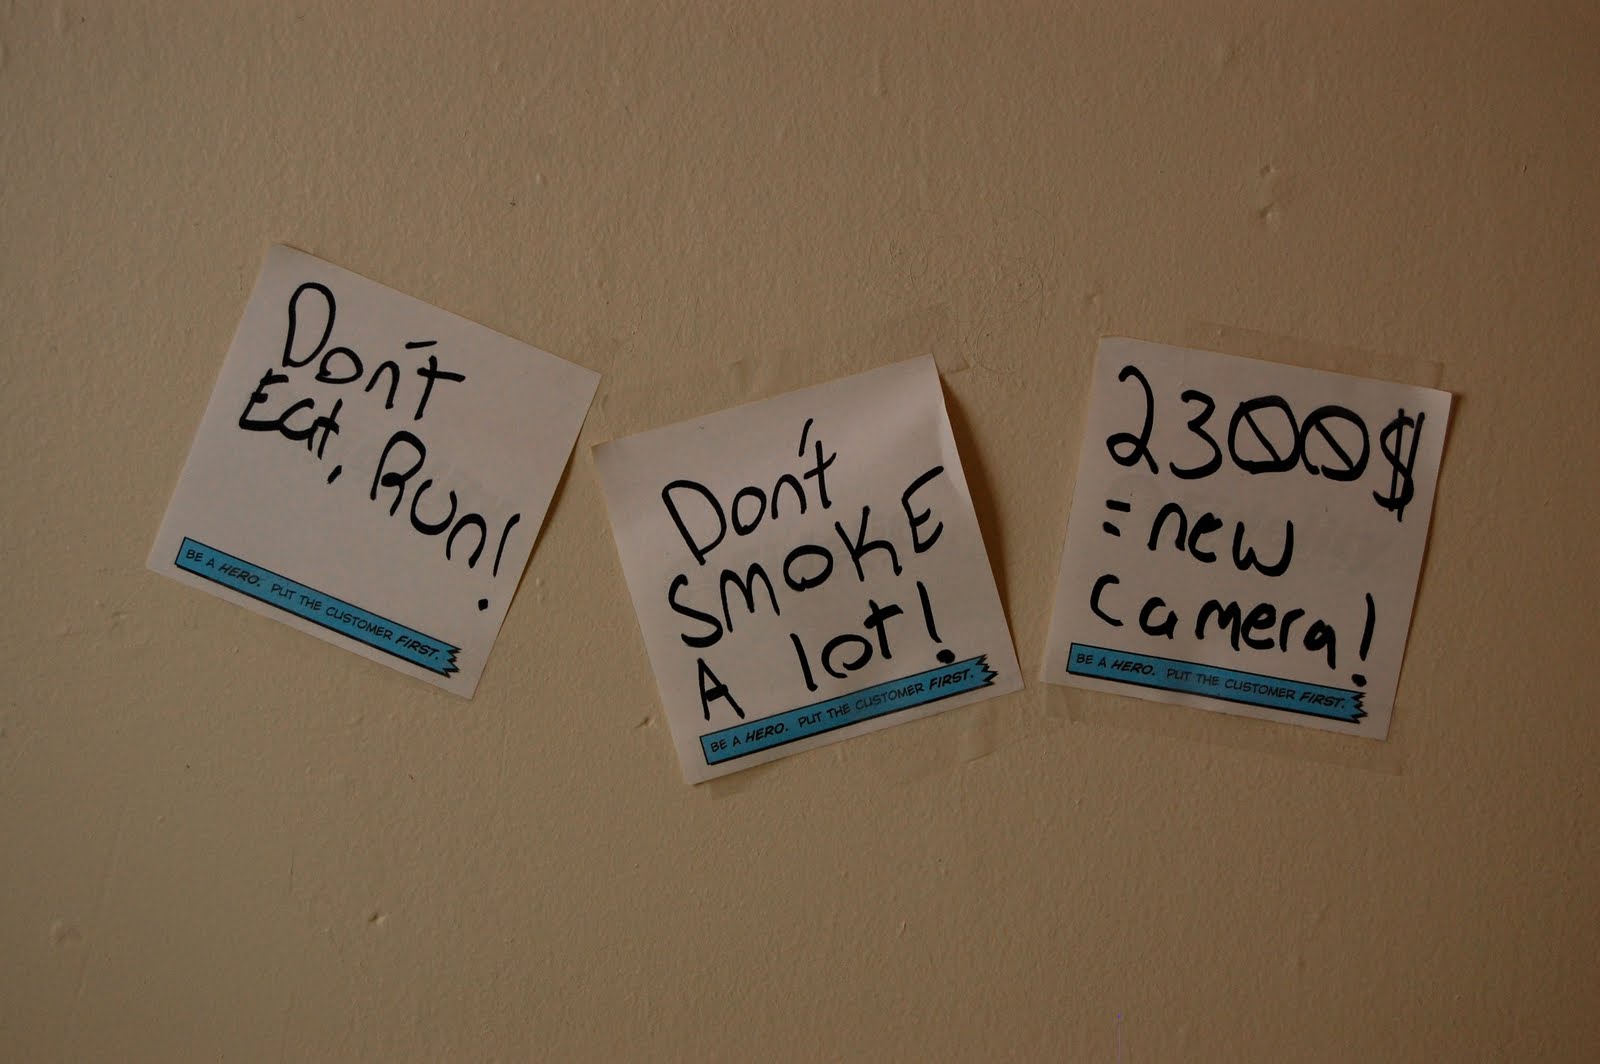 Don't
Eat, Run!
BE A HERO. PUT THE CUSTOMER FIRST.
Don't
SMOKE
A lot!
BE A HERO. PUT THE CUSTOMER FIRST.
2300$
=new
camera!
BE A HERO. PUT THE CUSTOMER FIRST.